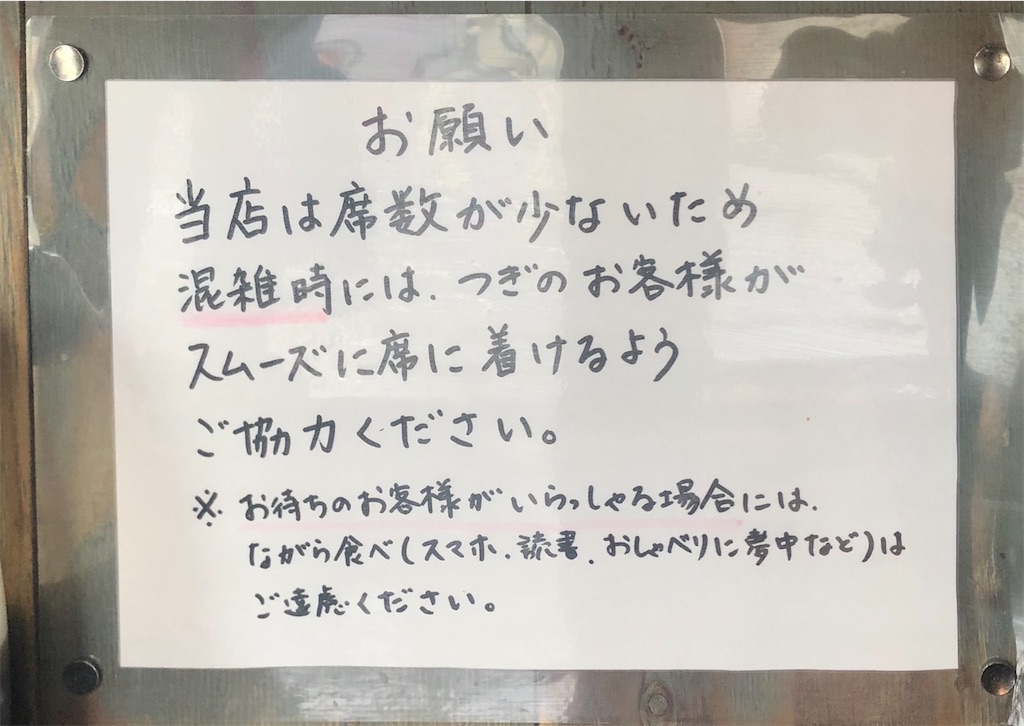 お願い
当店は席数が少ないため
混雑時には、つぎのお客様が
スムーズに席に着けるよう
ご協力ください。
※ お待ちのお客様がいらっしゃる場合には、
ながら食べ(スマホ、読書、おしゃべりに夢中など)は
ご遠慮ください。